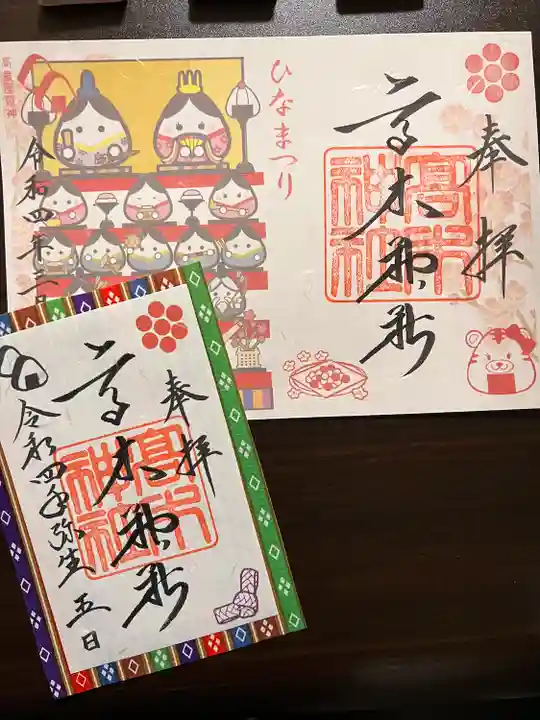 奉拝
高木神社
高木神社
ひなまつり
高皇産霊神
令和四年三月
奉拝
高木神社
高木神社
令和四年弥生五日